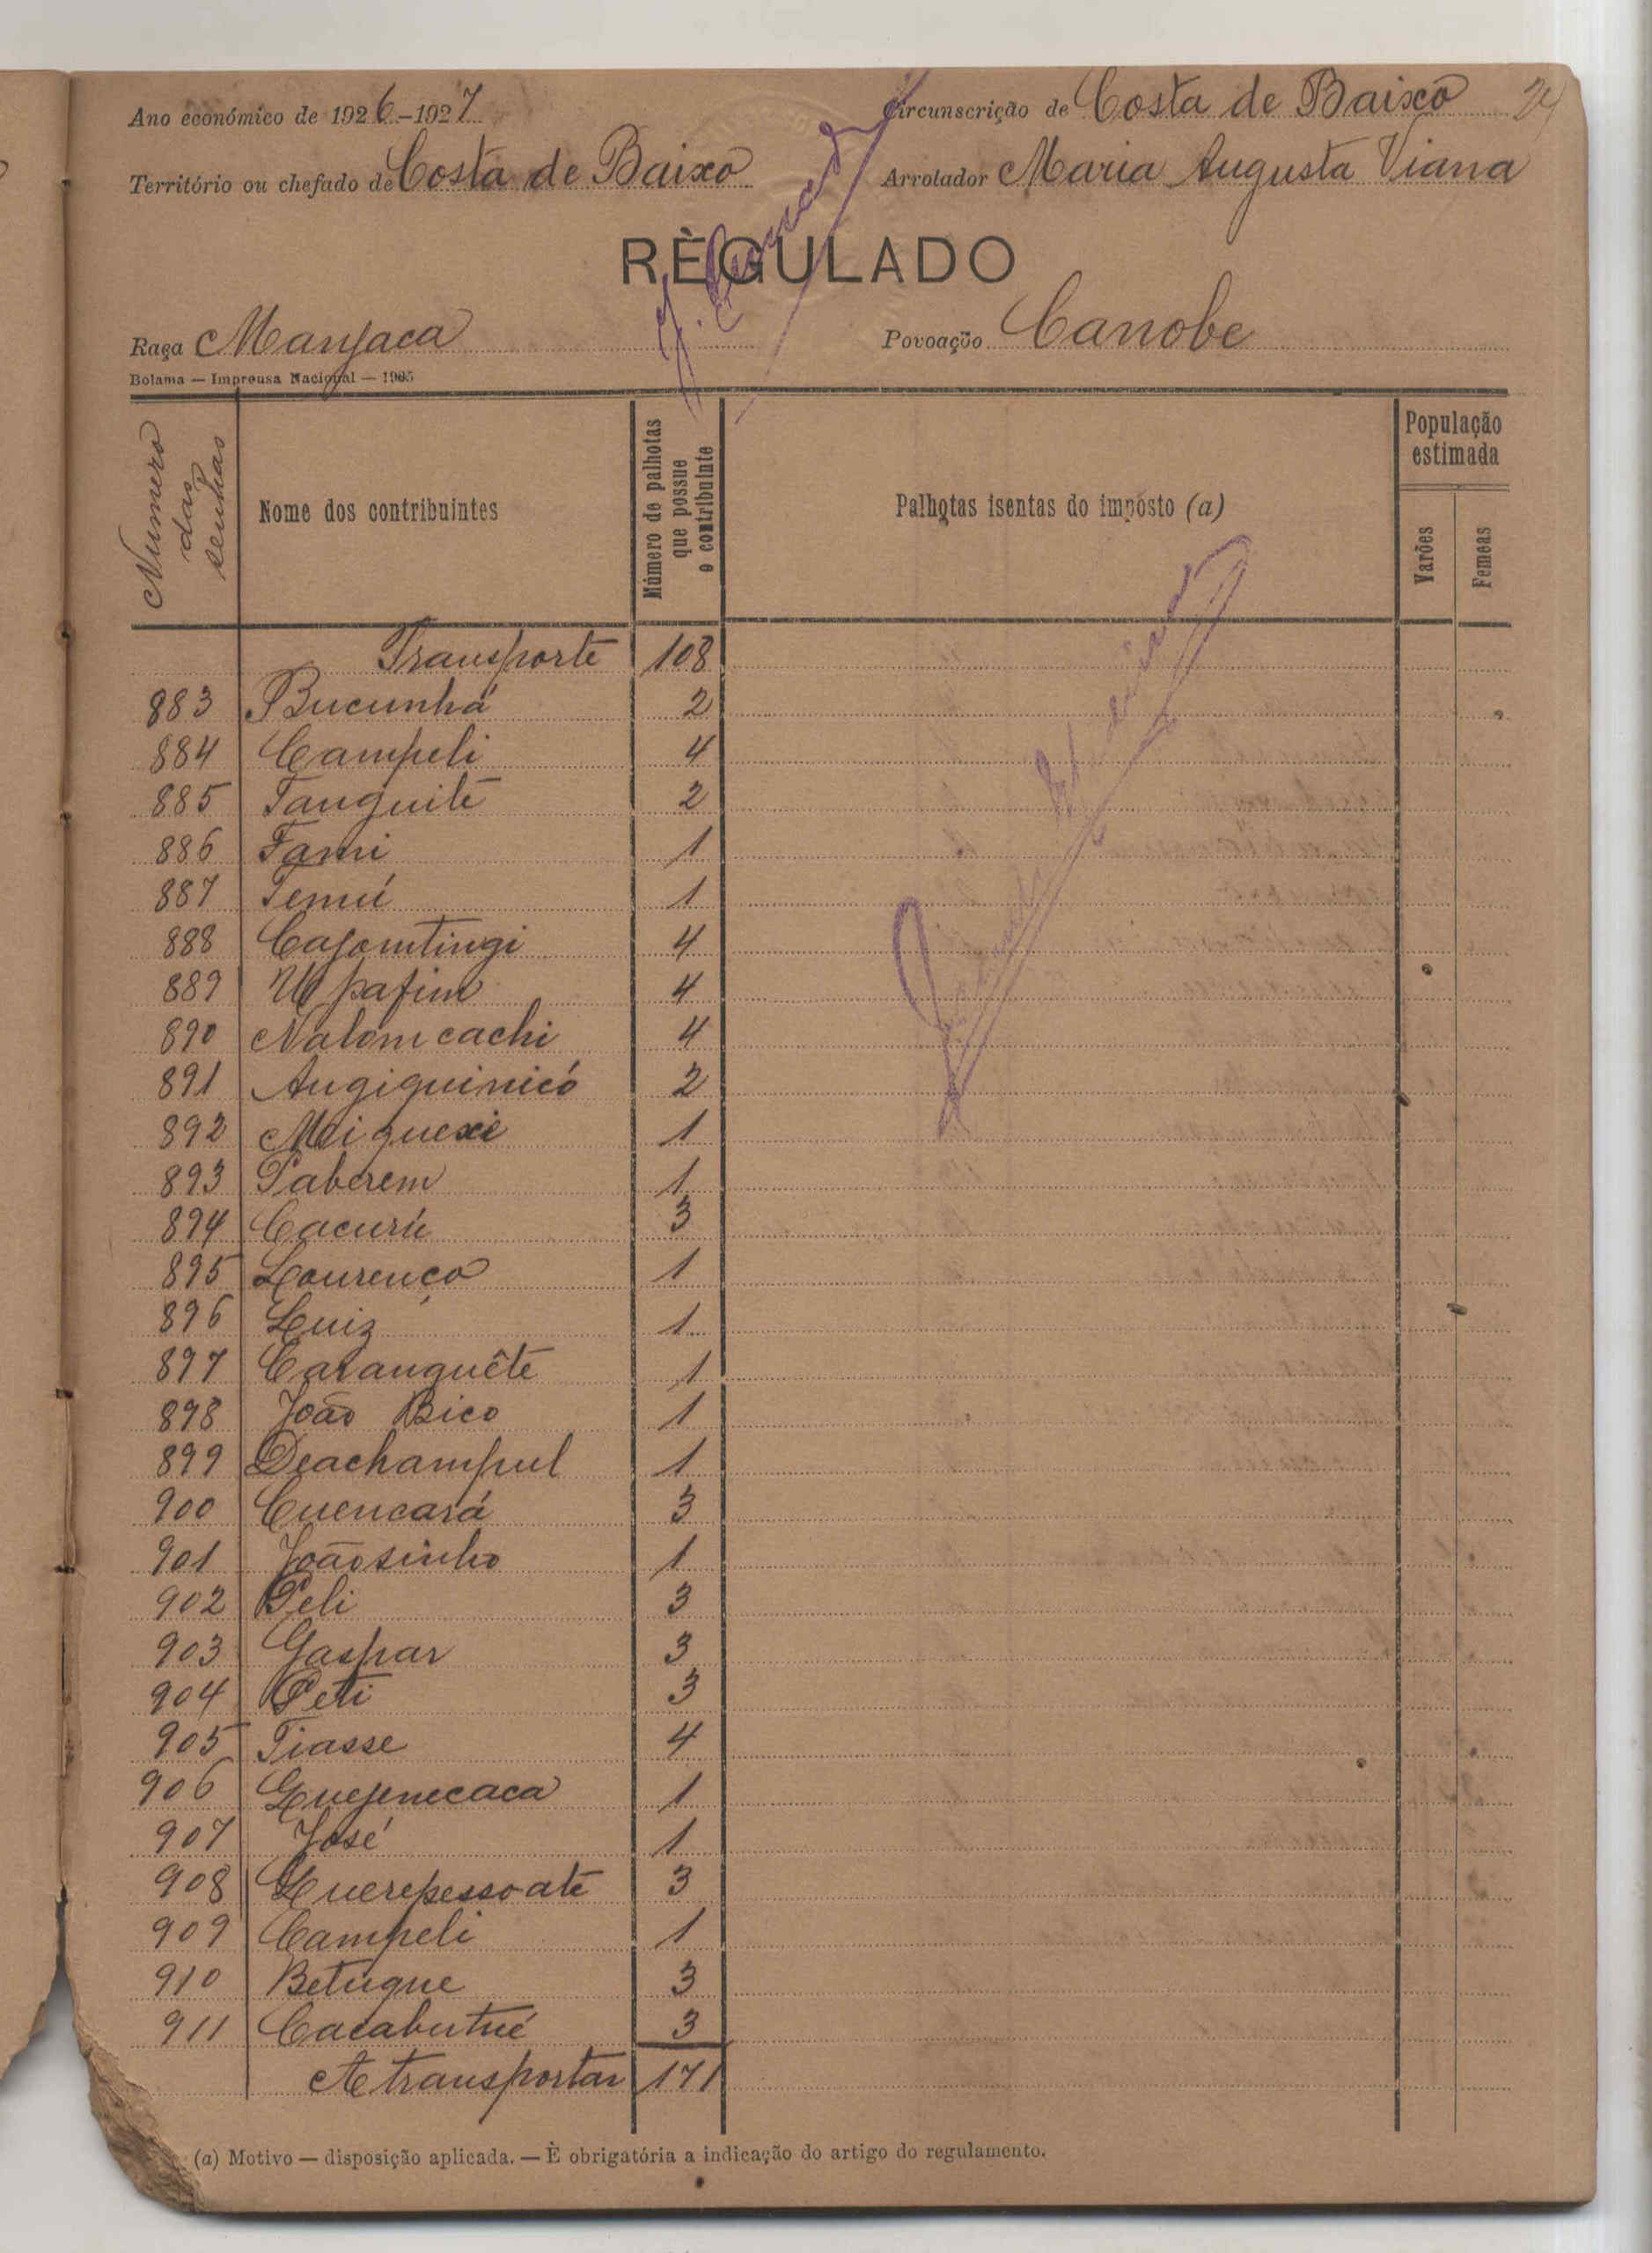 Ano económico de 1926-1927
Circunscrição de Costa de Baixo
24
Território ou chefado de Costa de Baixo
Arrolador Maria Augusta Viana
RÈGULADO
Raça Manjaca
Povoação Canobe
Bolama — Imprensa Nacional — 1905
Numero das senhas
Nome dos contribuintes
Número de palhotas que possue o contribuinte
Palhotas isentas do impôsto (a)
População estimada
Varões
Femeas
Transporte 108
883 Bucunhá 2
884 Campeli 4
885 Tanguité 2
886 Fami 1
887 Temú 1
888 Cajomtingi 4
889 Upafim 4
890 Nalomcachi 4
891 Angiquinicó 2
892 Miquexe 1
893 Paberem 1
894 Cacurú 3
895 Lourenço 1
896 Luiz 1
897 Caranguête 1
898 João Bico 1
899 Deachampul 1
900 Cuencará 3
901 Joãosinho 1
902 Peli 3
903 Gaspar 3
904 Peti 3
905 Tiasse 4
906 Quejenecaca 1
907 José 1
908 Querepessoate 3
909 Campeli 1
910 Betugue 3
911 Cacabutué 3
A transportar 171
(a) Motivo — disposição aplicada. — È obrigatória a indicação do artigo do regulamento.